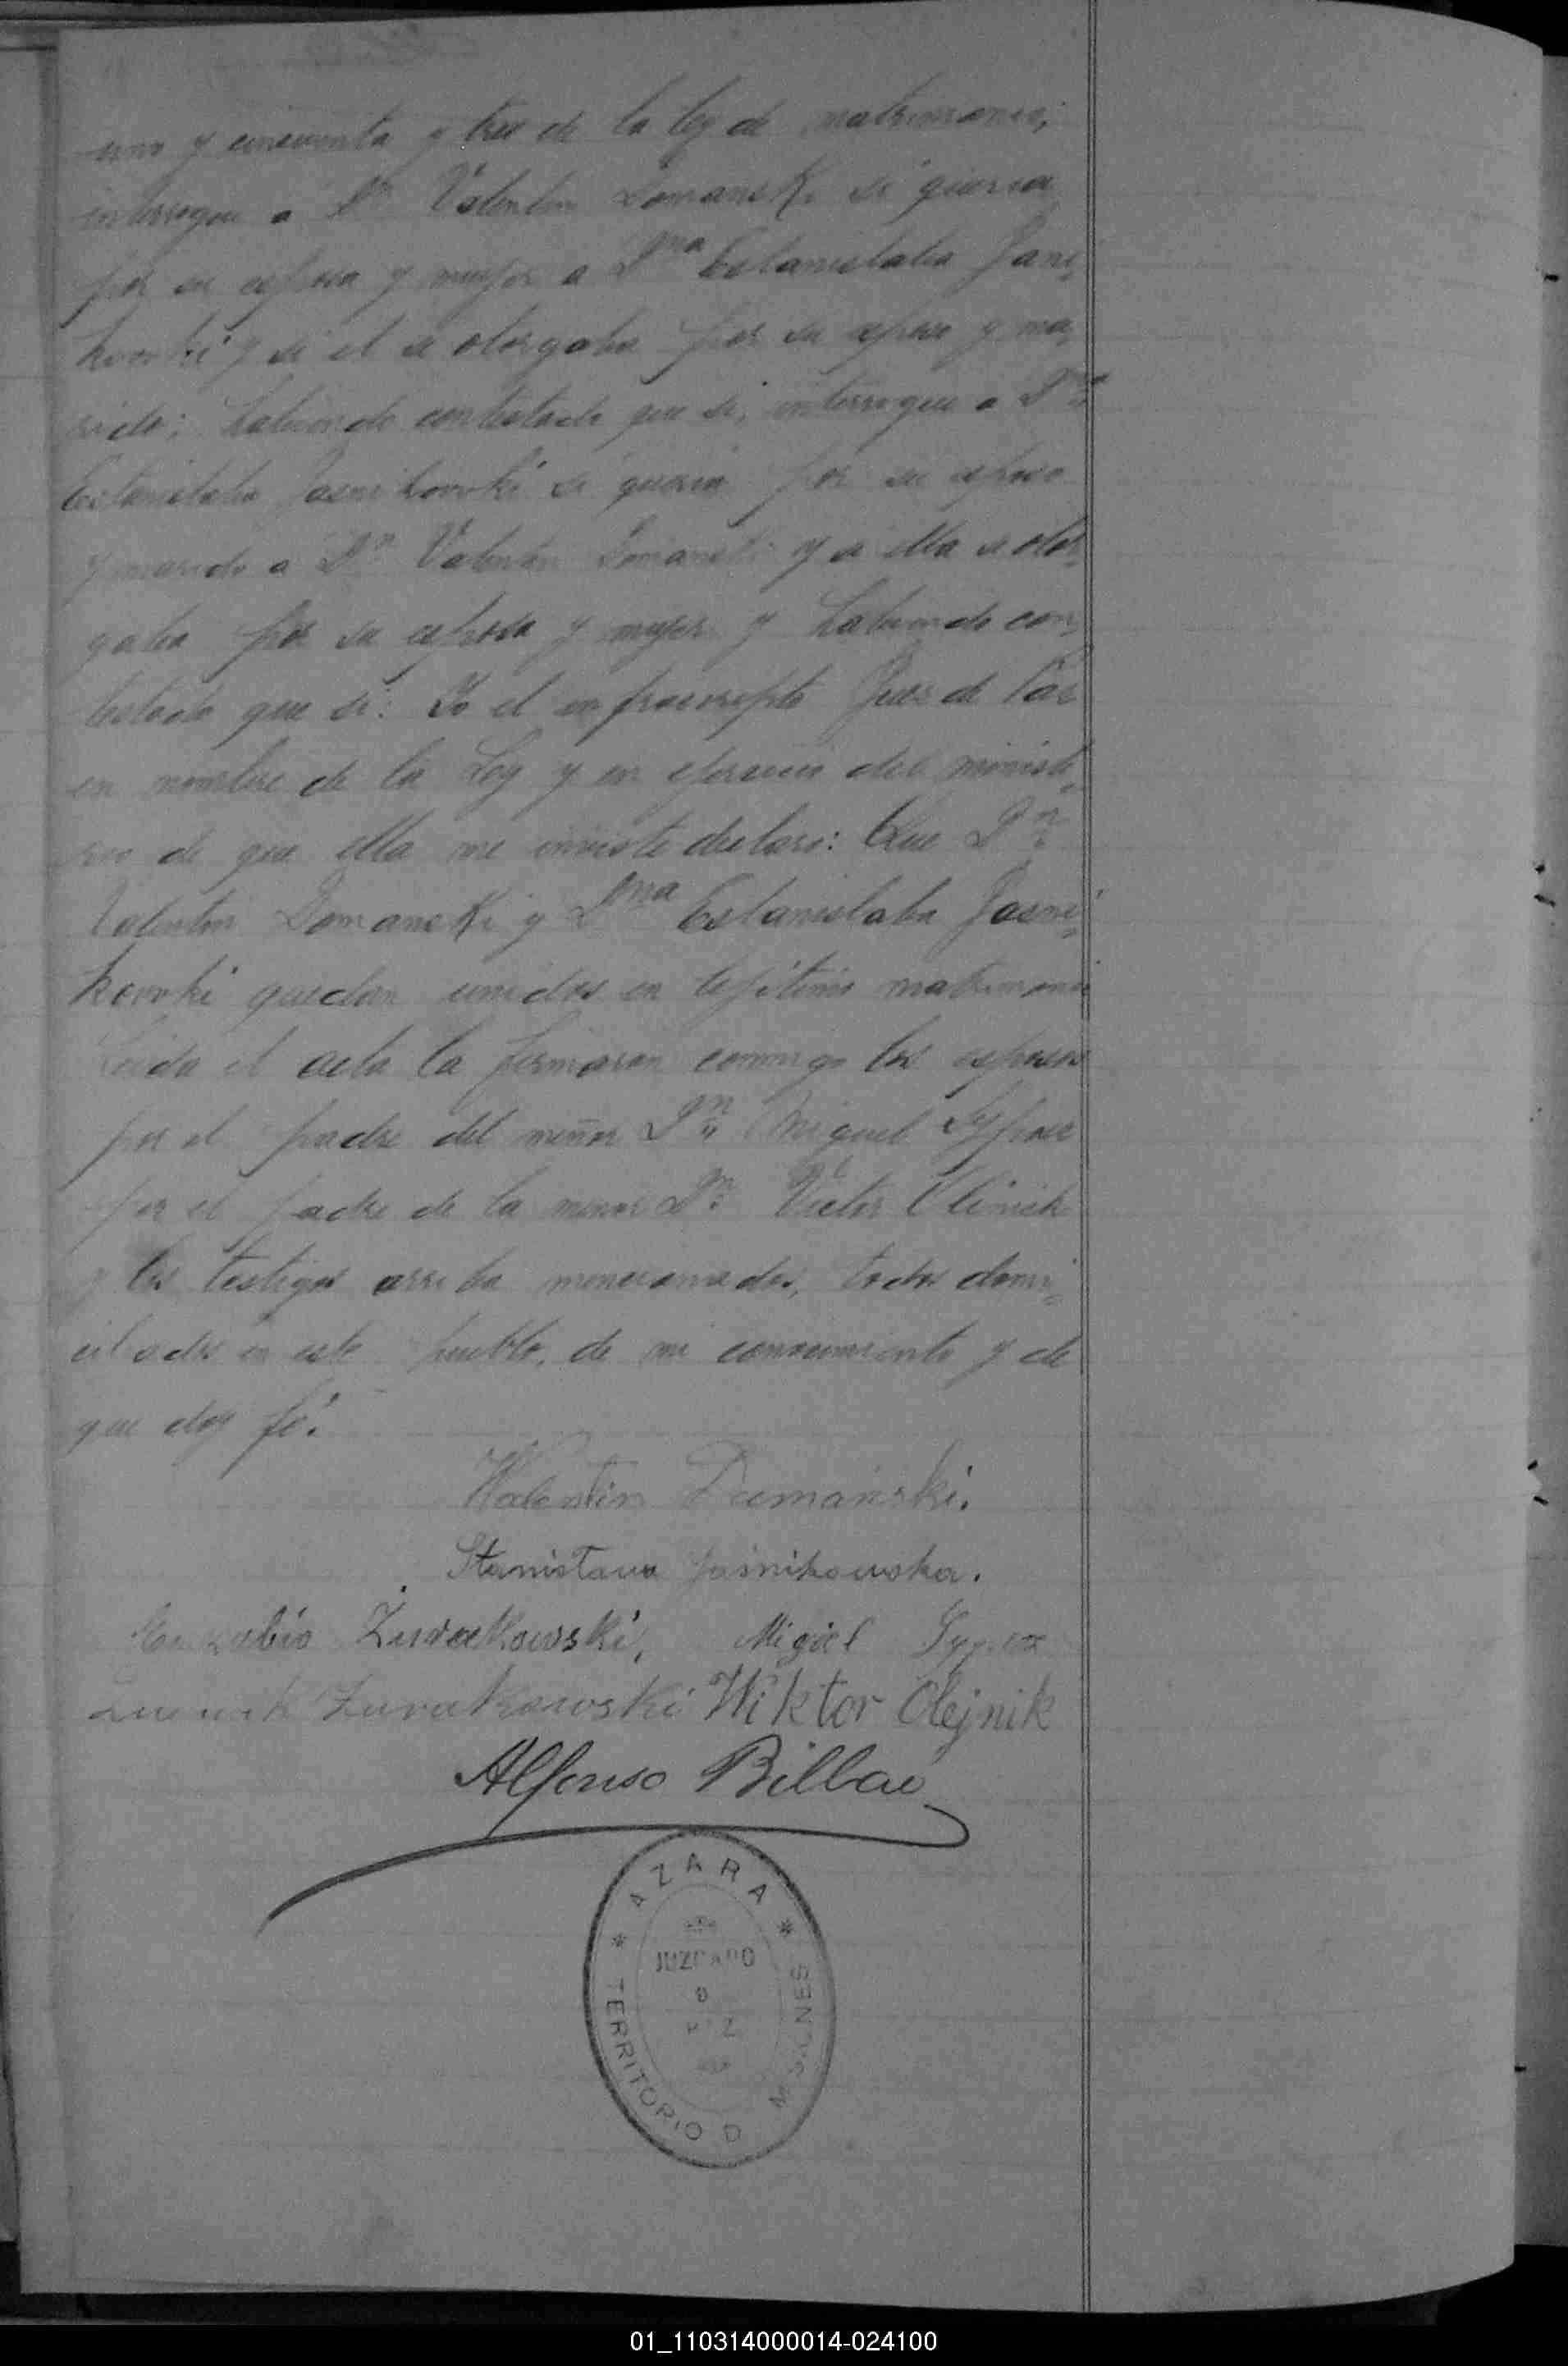 uno y cincuenta y tres de la ley de matrimonio,
interrogue a Dn Valentin Domanski si queria
por su esposa y mujer a Dma Estanislaba Jasni
kovski y si el se otorgaba por su esposo y ma
rido; habiendo contestado que si, interrogue a Dma
Estanislaba Jasnikovski si queria por su esposo
y marido a Dn Valentin Domanski y si ella se otor
gaba por su esposa y mujer y habiendo con
testado que si: Yo el infraescripto Juez de Paz
en nombre de la Ley y en ejercicio del ministe
rio de que ella me inviste declaro: Que Dn
Valentin Domanski y Dma Estanislaba Jasni
kovski quedan unidos en lejítimo matrimonio
Leida el acta la firmaron conmigo los esposos
por el padre del menor Dn Miguel
por el padre de la menor Dn Victor Olinik
y los testigos arriba mencionados, todos domi
ciliados en este pueblo, de mi conocimiento y de
que doy fé.
Walentin Dumański.
Stanisława Jaśnikowska.
Żurakowski, Migiel
Żurakowski Wiktor Olejnik
Alfonso Bilbao
* AZARA *
JUZGADO
D
PAZ
TERRITORIO D MISIONES
01_110314000014-024100